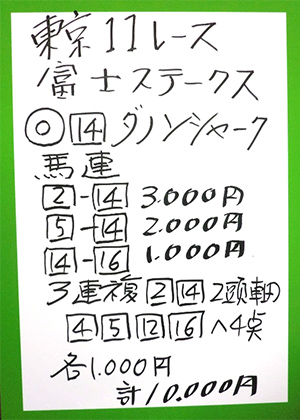 東京11レース
富士ステークス
◎ 14 ダノンシャーク
馬連
2-14 3.000円
5-14 2.000円
14-16 1.000円
3連複 2 14 2頭軸
4 5 12 16 へ4点
各1.000円
計10.000円